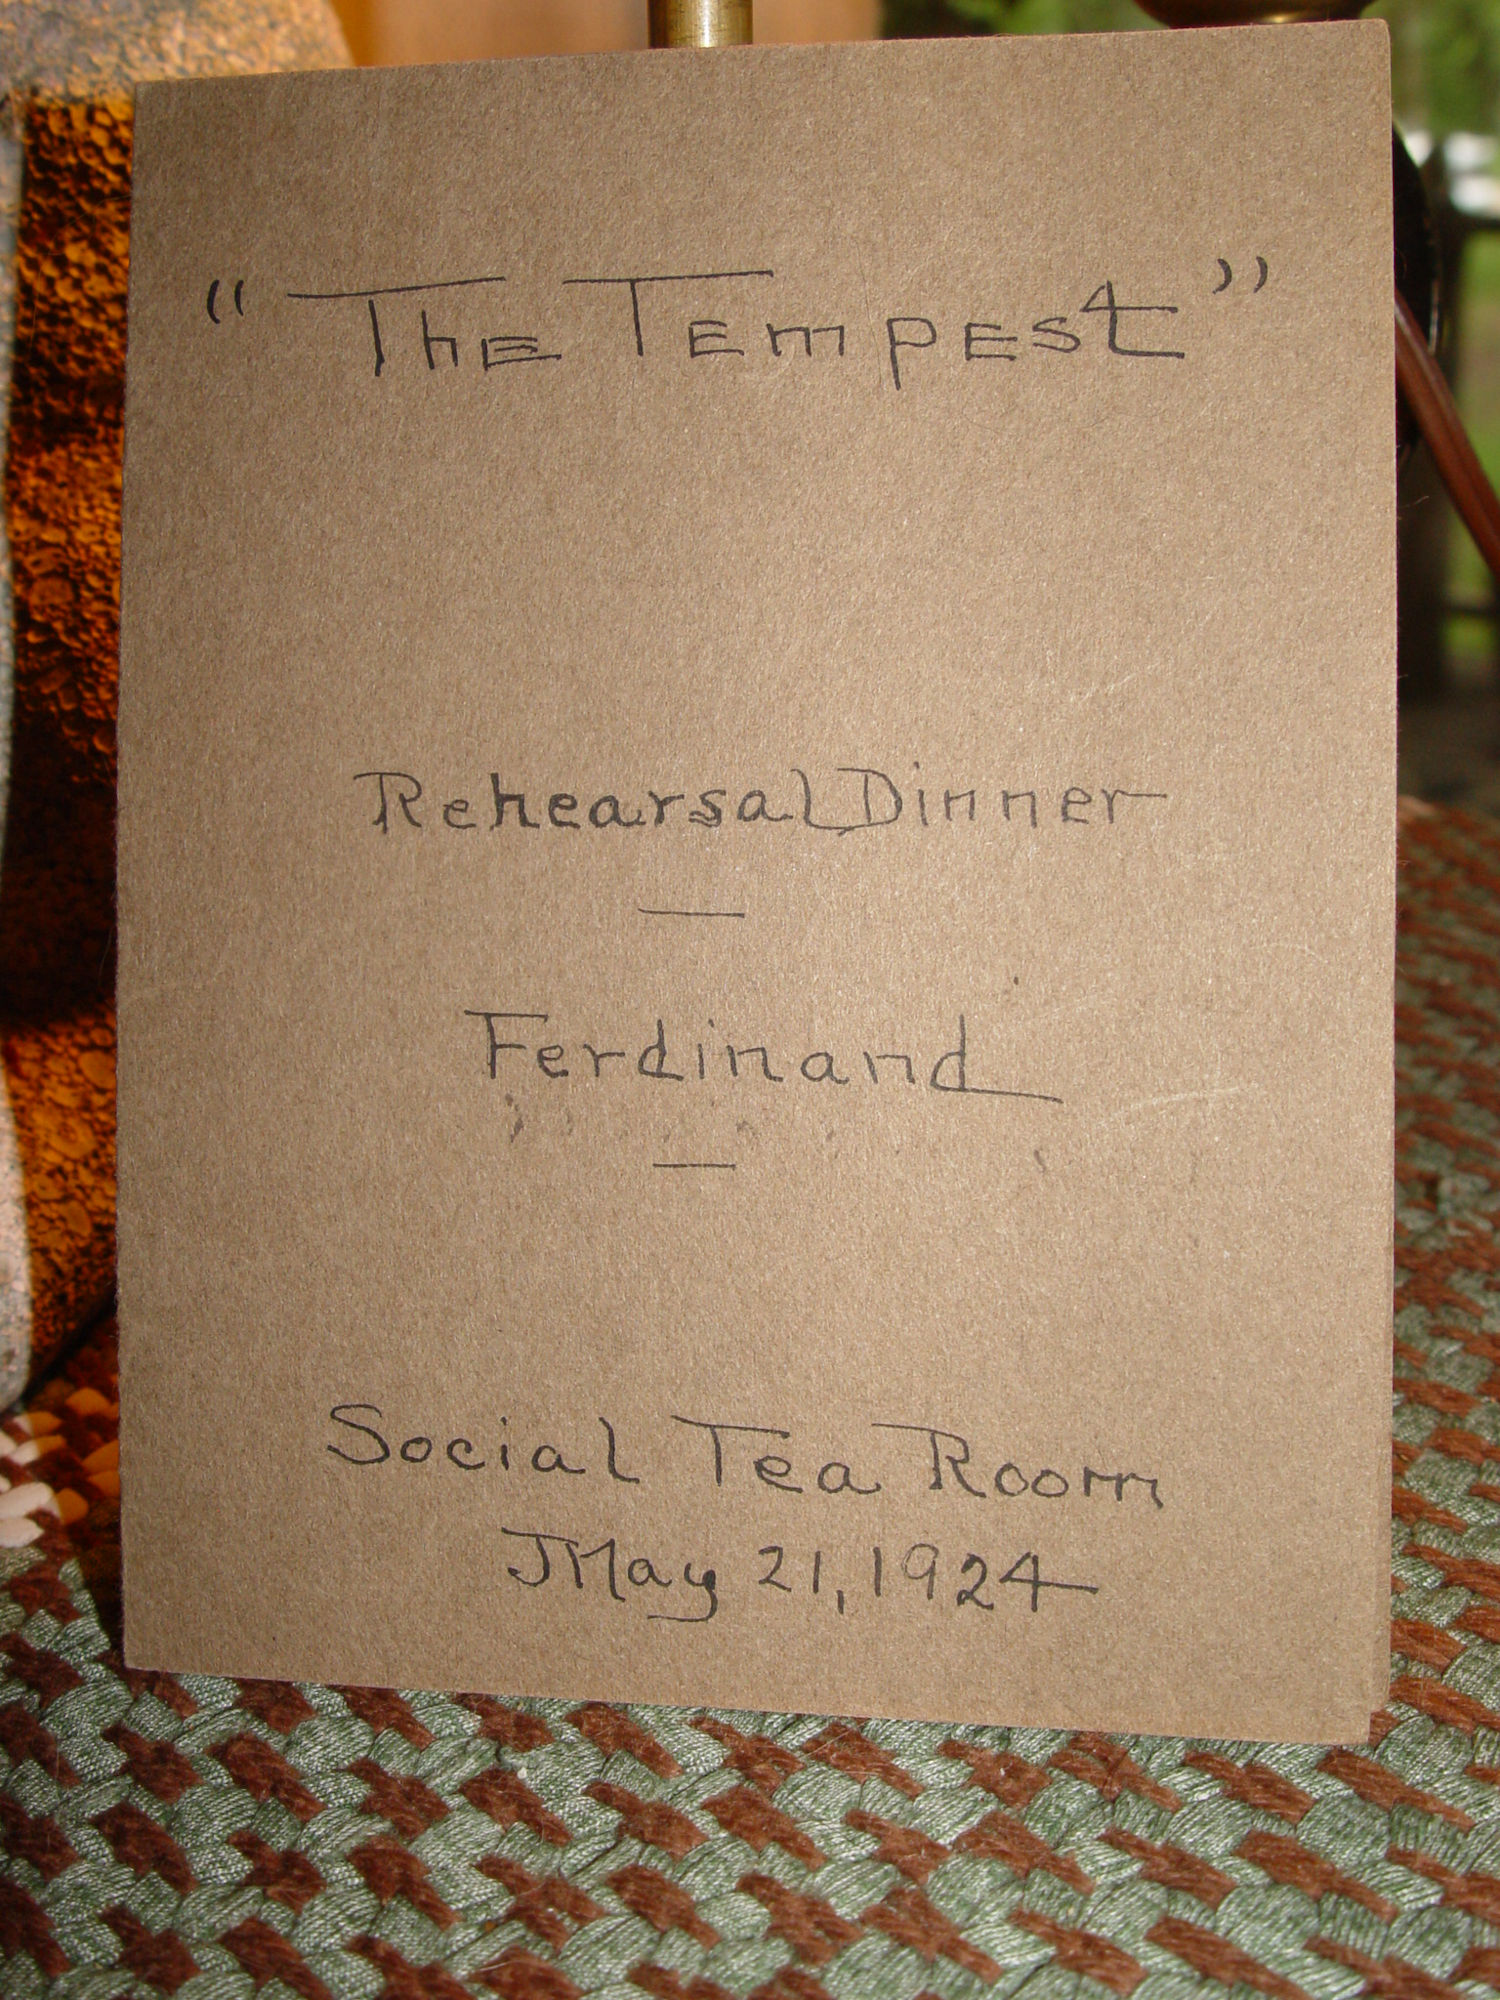 "The Tempest"
Rehearsal Dinner
—
Ferdinand
—
Social Tea Room
May 21, 1924